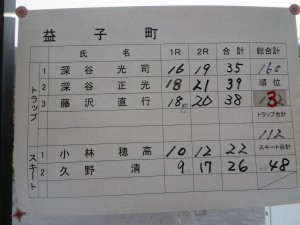 益子町
氏 名 1R 2R 合計 総合計
トラップ
1 深谷 光司 16 19 35 160
2 深谷 正光 18 21 39 順位
3 藤沢 直行 18 20 38 3
トラップ合計
112
スキート
1 小林 穂高 10 12 22 スキート合計
2 久野 清 9 17 26 48